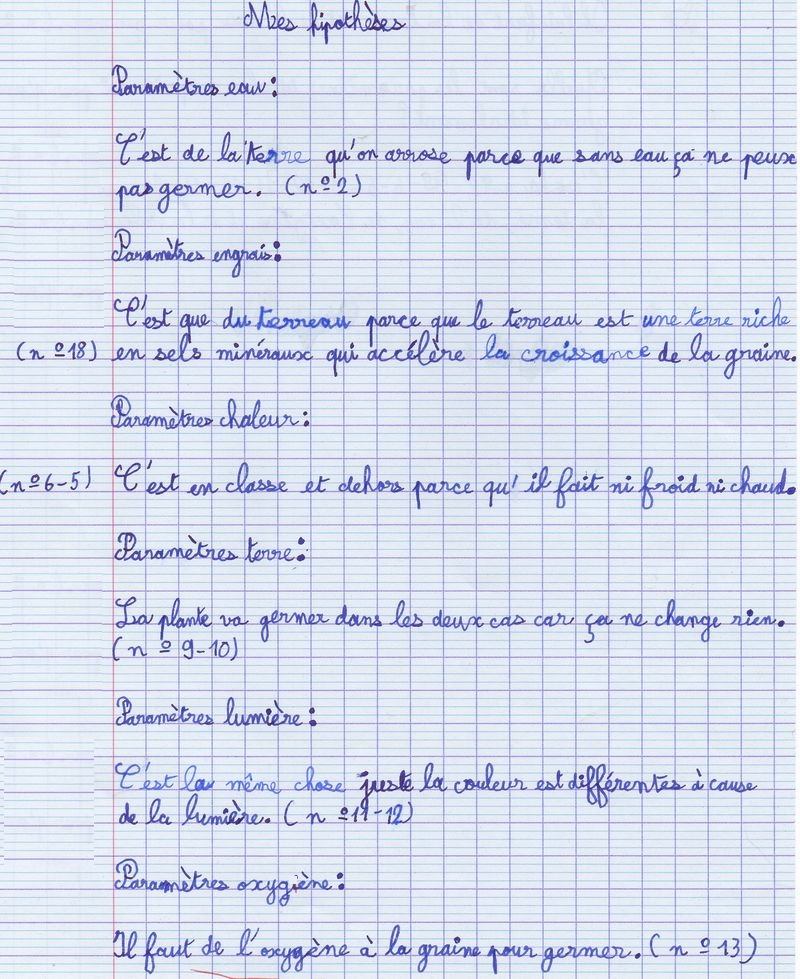 Mes hipothèses
Paramètres eau :
C'est de la terre qu'on arrose parce que sans eau ça ne peux
pas germer. (n º 2)
Paramètres engrais :
C'est que du terreau parce que le terreau est une terre riche
(n º 18) en sels minéraux qui accélère la croissance de la graine.
Paramètres chaleur :
(n º 6-5) C'est en classe et dehors parce qu'il fait ni froid ni chaud.
Paramètres terre :
La plante va germer dans les deux cas car ça ne change rien.
(n º 9-10)
Paramètres lumière :
C'est la même chose juste la couleur est différentes à cause
de la lumière. (n º 11-12)
Paramètres oxygiène :
Il faut de l'oxygène à la graine pour germer. (n º 13)